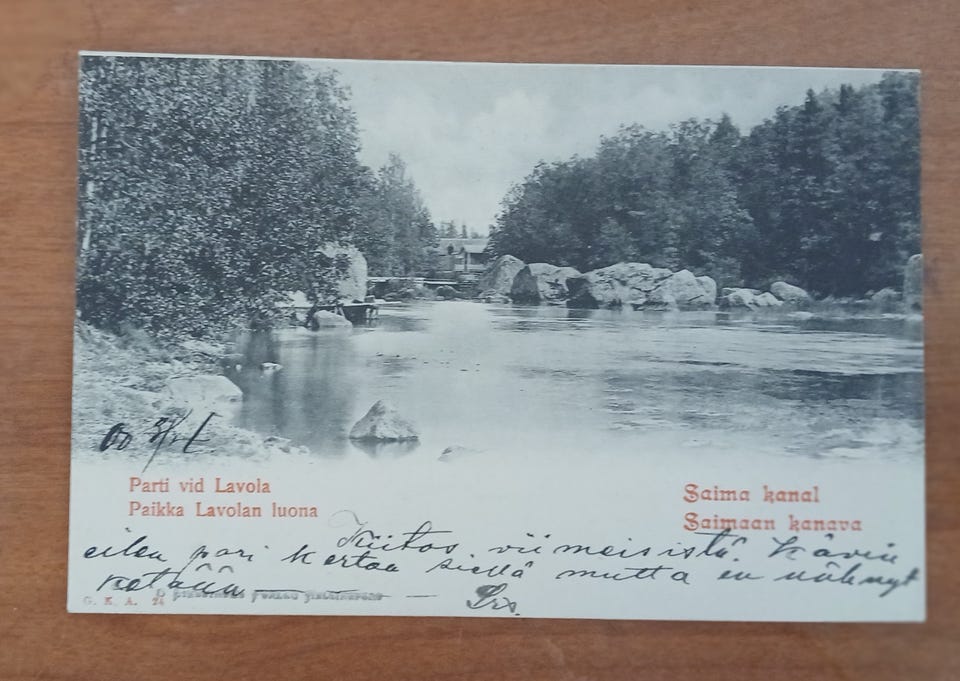 Parti vid Lavola
Paikka Lavolan luona
Saima kanal
Saimaan kanava
Kiitos viimeisistä Kävin
eilen pari kertaa siellä mutta en nähnyt
ketään
G. K. A. 24